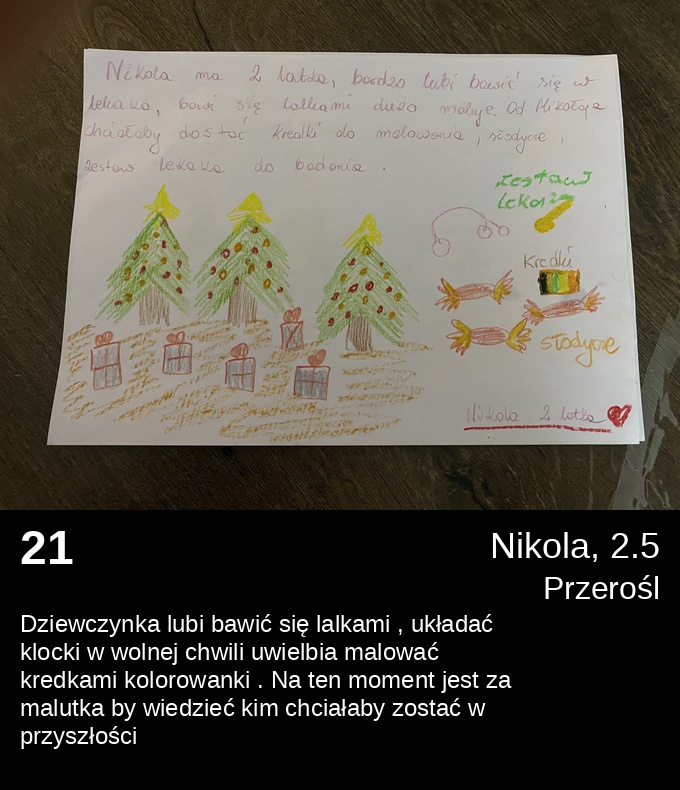 Nikola ma 2 latka, bardzo lubi bawić się w
lekaża, bawi się lalkami dużo maluje. Od Mikołaja
chciałaby dostać kredki do malowania, słodycze,
zestaw lekaża do badania.
zestaw
kredki
słodycze
Nikola 2 latka
21
Nikola, 2.5
Przerośl
Dziewczynka lubi bawić się lalkami , układać
klocki w wolnej chwili uwielbia malować
kredkami kolorowanki . Na ten moment jest za
malutka by wiedzieć kim chciałaby zostać w
przyszłości